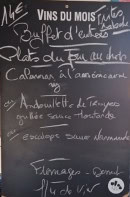 14€ VINS DU MOIS
Buffet d'entrées
Plats du Jour au choix
Calamar à l'américaine
ou Andouillette de Troyes
grillée sauce Moutarde
ou escalope sauce normande
Fromages
1/4 de Vin